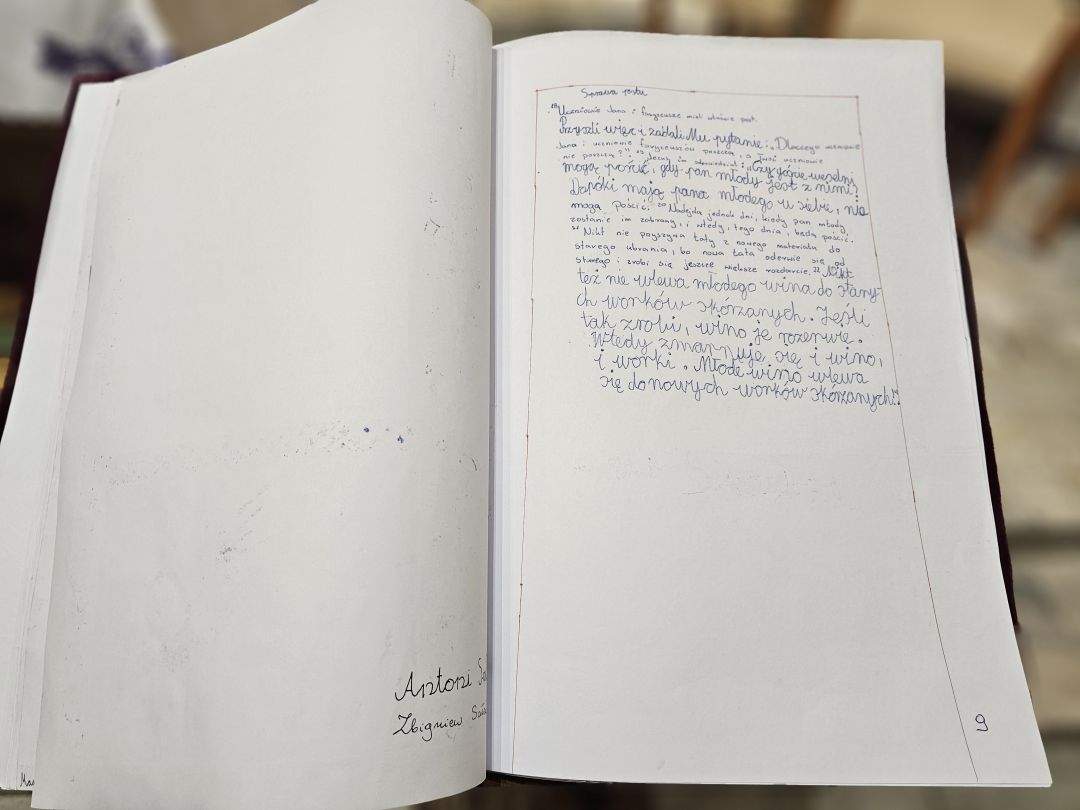 Antoni
Zbigniew
Sprawa postu
18 Uczniowie Jana i faryzeusze mieli właśnie post.
Przyszli więc i zadali Mu pytanie: „Dlaczego uczniowie
Jana i uczniowie faryzeuszów poszczą, a Twoi uczniowie
nie poszczą?". 19 Jezus im odpowiedział: „Czy goście weselni
mogą pościć, gdy pan młody jest z nimi?
Dopóki mają pana młodego u siebie, nie
mogą pościć. 20 Nadejdą jednak dni, kiedy pan młody
zostanie im zabrany, i wtedy, tego dnia, będą pościć.
21 Nikt nie przyszywa łaty z nowego materiału do
starego ubrania, bo nowa łata oderwie się od
starego i zrobi się jeszcze większe rozdarcie. 22 Nikt
też nie wlewa młodego wina do stary-
ch worków skórzanych. Jeśli
tak zrobi, wino je rozerwie.
Wtedy zmarnuje się i wino,
i worki. Młode wino wlewa
się do nowych worków skórzanych".
9